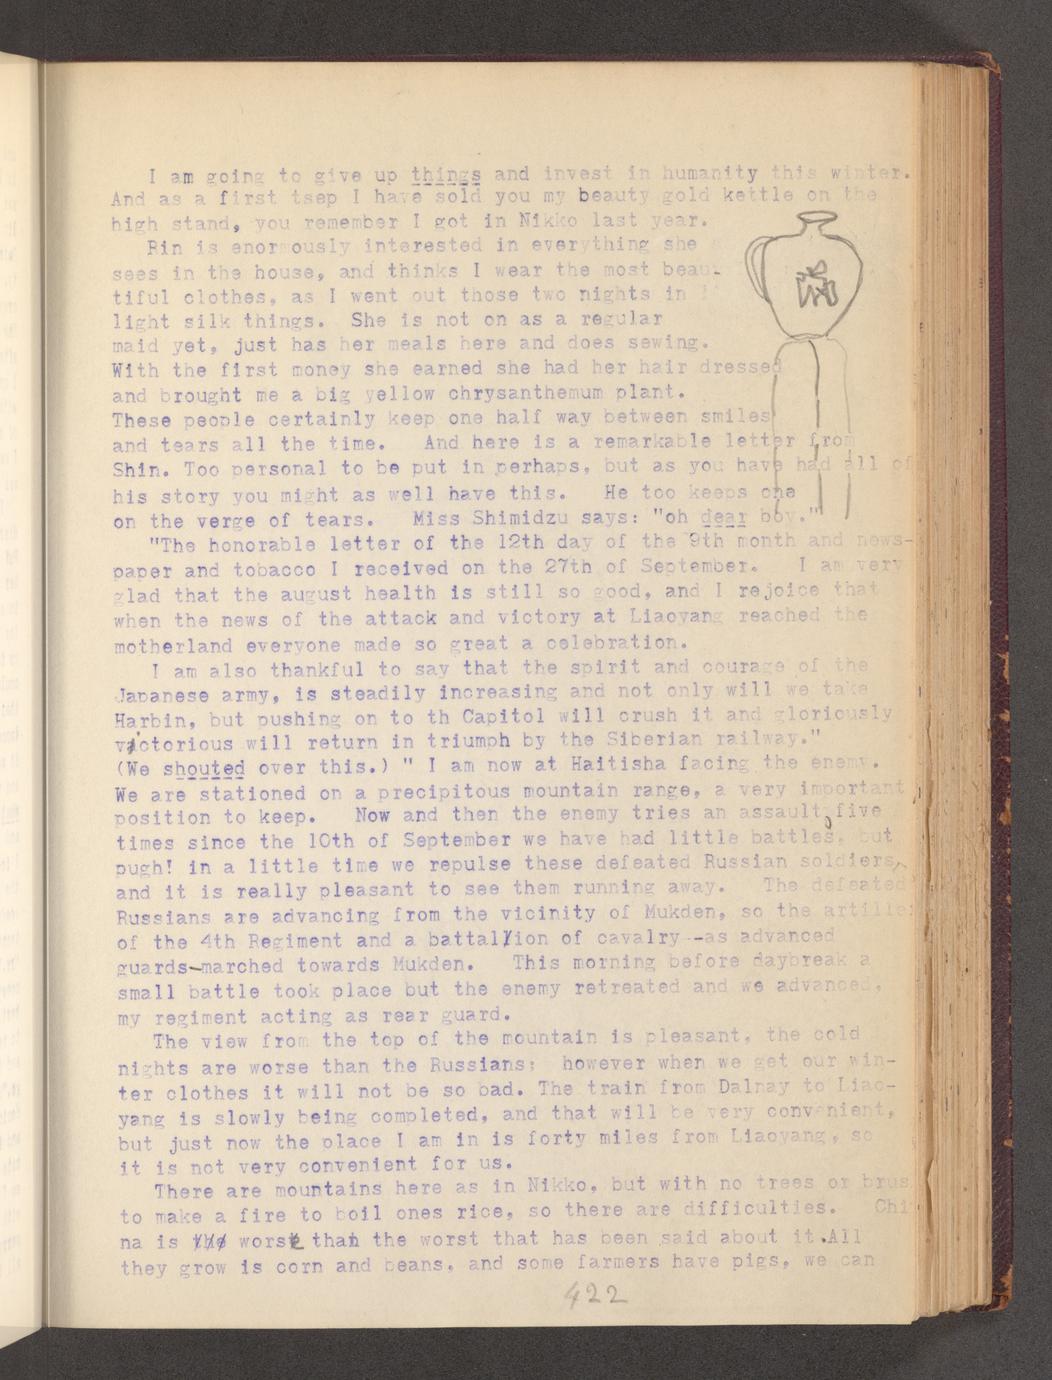 I am going to give up things and invest in humanity this winter.
And as a first tsep I have sold you my beauty gold kettle on the
high stand, you remember I got in Nikko last year.
Rin is enormously interested in everything she
sees in the house, and thinks I wear the most beau-
tiful clothes, as I went out those two nights in
light silk things. She is not on as a regular
maid yet, just has her meals here and does sewing.
With the first money she earned she had her hair dressed
and brought me a big yellow chrysanthemum plant.
These people certainly keep one half way between smiles
and tears all the time. And here is a remarkable letter from
Shin. Too personal to be put in perhaps, but as you have had all of
his story you might as well have this. He too keeps one
on the verge of tears. Miss Shimidzu says: "oh dear boy."
"The honorable letter of the 12th day of the 9th month and news-
paper and tobacco I received on the 27th of September. I am very
glad that the august health is still so good, and I rejoice that
when the news of the attack and victory at Liaoyang reached the
motherland everyone made so great a celebration.
I am also thankful to say that the spirit and courage of the
Japanese army, is steadily increasing and not only will we take
Harbin, but pushing on to th Capitol will crush it and gloriously
victorious will return in triumph by the Siberian railway."
(We shouted over this.) " I am now at Haitisha facing the enemy.
We are stationed on a precipitous mountain range, a very important
position to keep. Now and then the enemy tries an assault, five
times since the 10th of September we have had little battles, but
pugh! in a little time we repulse these defeated Russian soldiers,
and it is really pleasant to see them running away. The defeated
Russians are advancing from the vicinity of Mukden, so the artille
of the 4th Regiment and a battalion of cavalry--as advanced
guards-marched towards Mukden. This morning before daybreak a
small battle took place but the enemy retreated and we advanced,
my regiment acting as rear guard.
The view from the top of the mountain is pleasant, the cold
nights are worse than the Russians; however when we get our win-
ter clothes it will not be so bad. The train from Dalnay to Liao-
yang is slowly being completed, and that will be very convenient,
but just now the place I am in is forty miles from Liaoyang, so
it is not very convenient for us.
There are mountains here as in Nikko, but with no trees or brus
to make a fire to boil ones rice, so there are difficulties. Chi
na is worse than the worst that has been said about it. All
they grow is corn and beans, and some farmers have pigs, we can
422